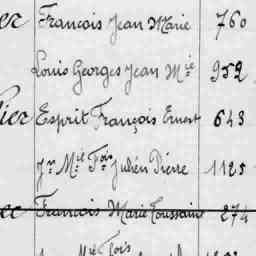 er François Jean Marie 760
Louis Georges Jean Mie 952
lier Esprit François Ernest 643
Jn Mie Fois Julien Pierre 1125
ec François Marie Toussaint 274
Mie Fois